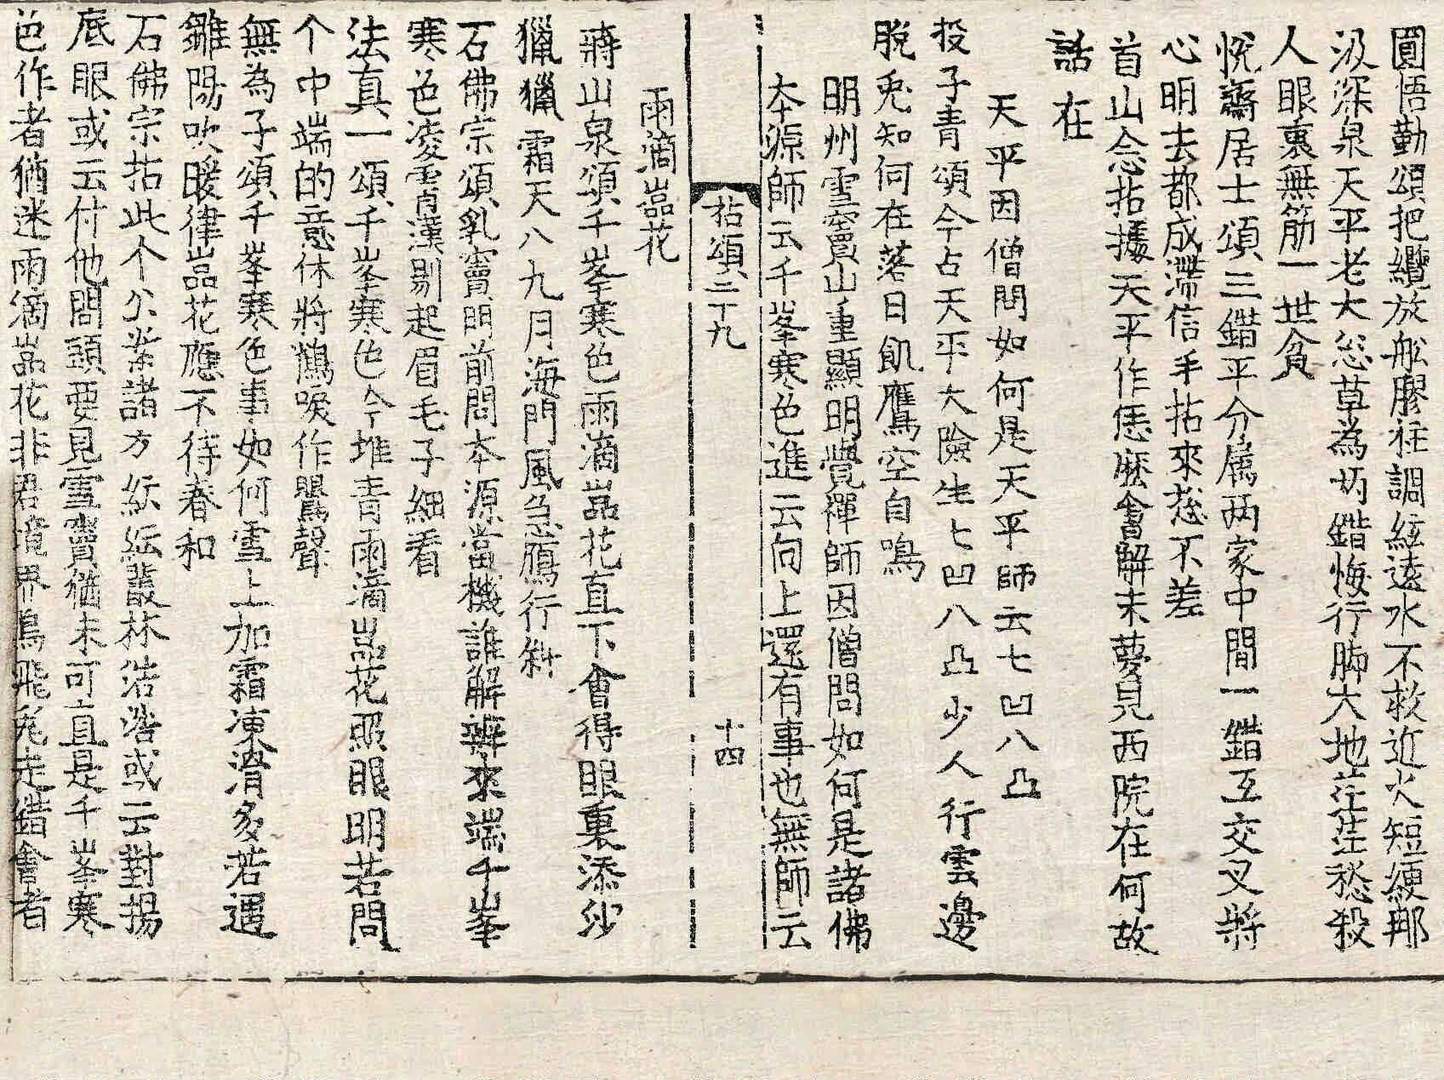 圓悟勤頌把纜放舡膠柱調絃遠水不救近火短綆那
汲深泉天平老大忩草為両錯悔行脚大地茫茫愁殺
人眼裏無筋一世貧
悅齋居士頌三錯平分属两家中間一錯互交叉將
心明去都成滯信手拈來惣不差
首山念拈據天平作恁麽會解未夢見西院在何故
話在
天平因僧問如何是天平師云七凹八凸
投子青頌今占天平大險生七凹八凸少人行雲邊
脫兎知何在落日飢鷹空自鳴
明州雪竇山重顯明覺禪師因僧問如何是諸佛
本源師云千峯寒色進云向上還有事也無師云
拈頌二十九
十四
雨滴嵓花
蔣山泉頌千峯寒色雨滴嵓花直下會得眼裏添沙
獵獵霜天八九月海門風急鴈行斜
石佛宗頌乳竇門前問本源當機誰解辨來端千峯
寒色凌霄漢剔起眉毛子細看
法真一頌千峯寒色今堆青雨滴嵓花照眼明若問
个中端的意休將鶴唳作鸎聲
無為子頌千峯寒色事如何雪上加霜凍滑多若遇
鄒陽吹暖律嵓花應不待春和
石佛宗拈此个公案諸方紜紜叢林浩浩或云對揚
底眼或云付他問頭要見雪竇猶未可直是千峯寒
色作者猶迷雨滴嵓花非君境界鳥飛兎走錯會者